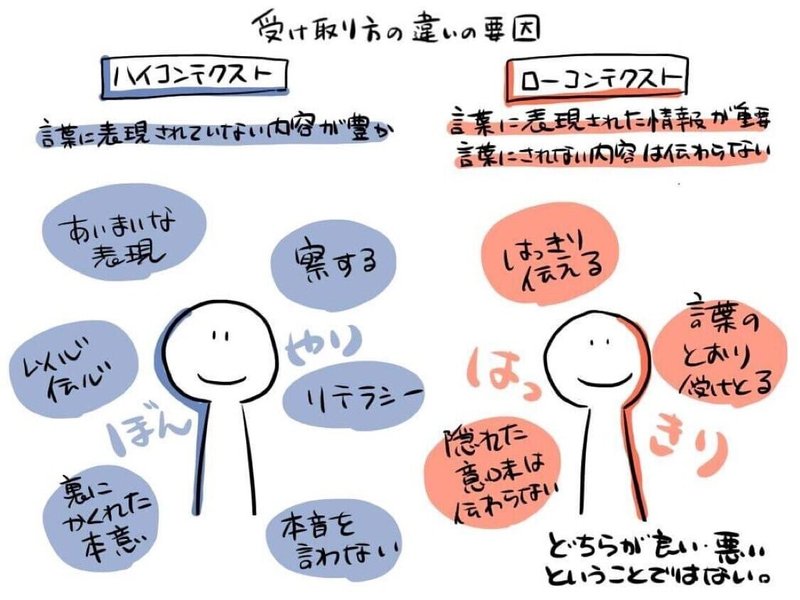 受け取り方の違いの要因
ハイコンテクスト
言葉に表現されていない内容が豊か
あいまいな
表現
察する
以心
伝心
やり
ぼん
リテラシー
裏に
かくれた
本意
本音を
言わない
ローコンテクスト
言葉に表現された情報が重要
言葉にされない内容は伝わらない
はっきり
伝える
言葉の
とおり
受けとる
はっ
きり
隠れた
意味は
伝わらない
どちらが良い・悪い
ということではない。